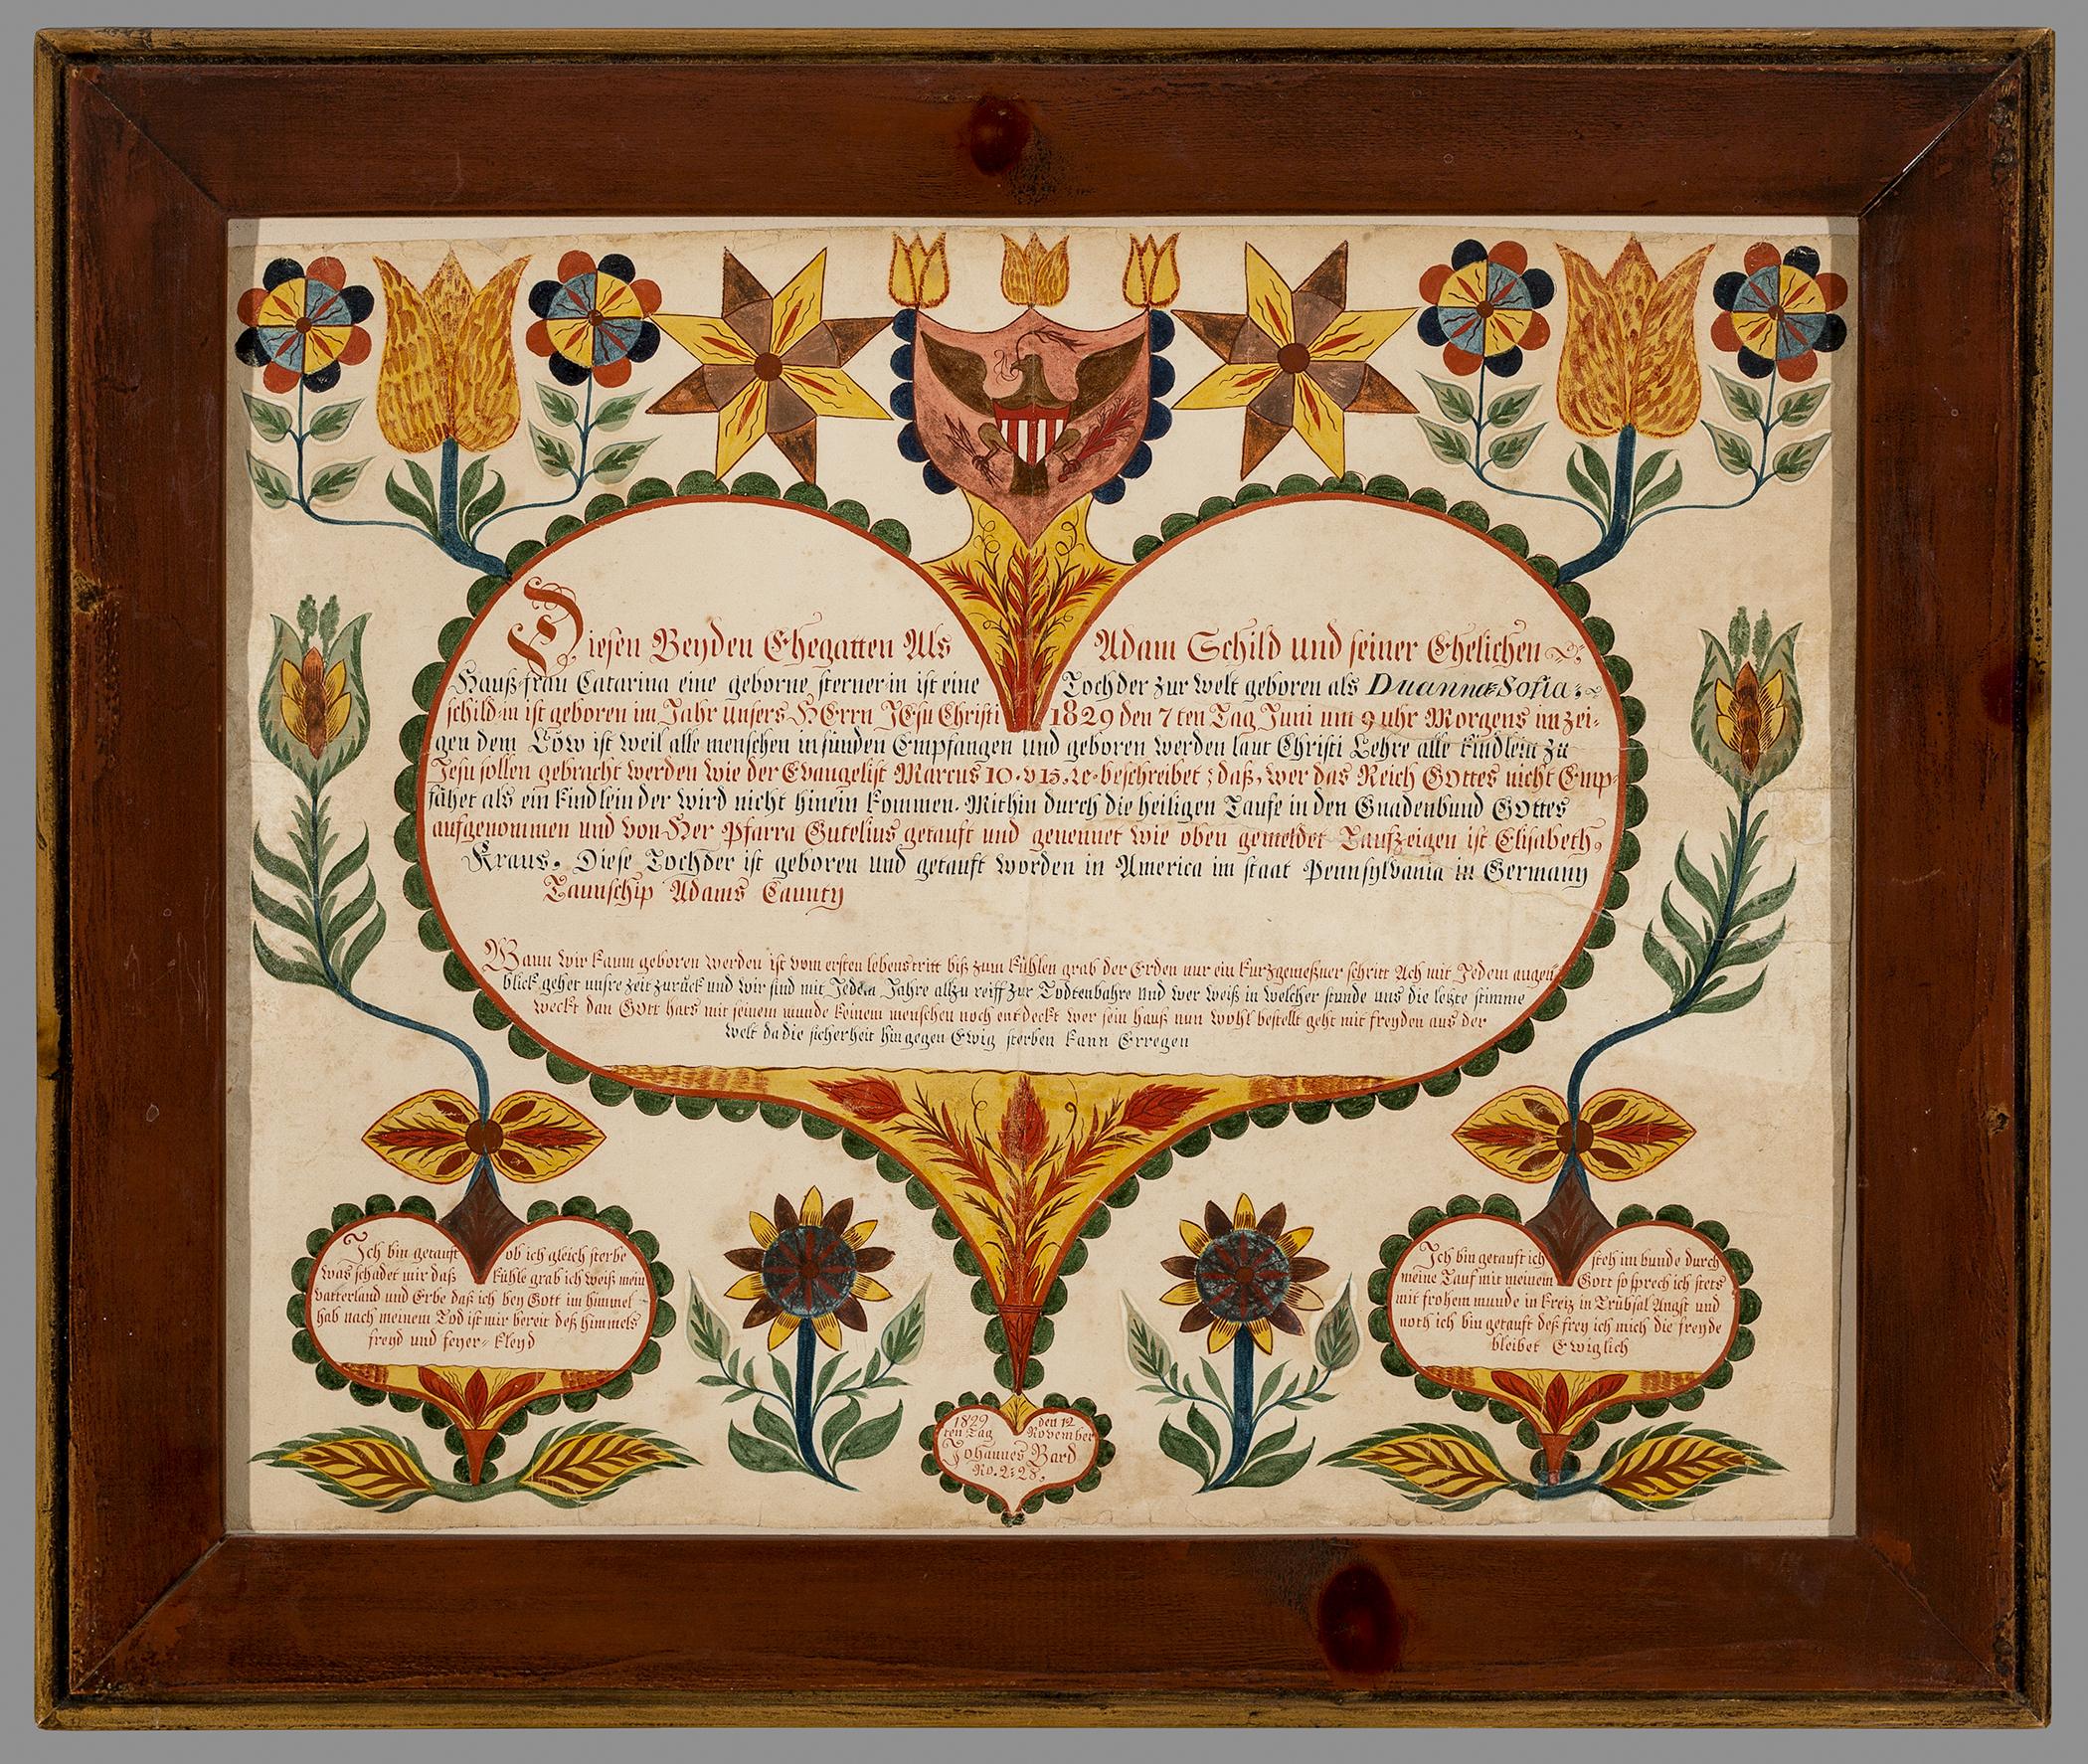 Diesen Beyden Ehegatten Als Adam Schild und seiner Ehelichen
Hauß-frau Catarina eine geborne sterner-in ist eine Tochder zur welt geboren als Duanna-Sofia
schild-in ist geboren im Jahr unsers HErrn JEsu Christi 1829 den 7ten Tag Juni um 9 uhr Morgens im zei-
gen dem Löw ist weil alle menschen in sünden Empfangen und geboren werden laut Christi Lehre alle kindlein zu
Jesu sollen gebracht werden wie der Evangelist Marcus 10. v 15. beschreibet; daß, wer das Reich GOttes nicht Emp-
fähet als ein kindlein der wird nicht hinein kommen. Mithin durch die heiligen Taufe in den Gnadenbund GOttes
aufgenommen und von Her Pfarra Gutelius getauft und genennet wie oben gemeldet Taufzeigen ist Elisabeth,
Kraus. Diese Tochder ist geboren und getauft worden in America im staat Pennsylvania in Germany
Taunschip Adams Caunty
Wann wir kaum geboren werden ist vom ersten lebenstritt biß zum kühlen grab der Erden nur ein kurzgemeßner schritt Ach mit Jedem augen
blick gehet unsre zeit zurück und wir sind mit Jedem Jahre allzu reiff zur Todtenbahre und wer weiß in welcher stunde uns die letzte stimme
weckt dan GOtt hats mit seinem munde keinem menschen noch entdeckt wer sein hauß nun wohl bestellt geht mit freyden aus der
welt da die sicherheit hingegen Ewig sterben kann Erregen
Ich bin getauft ob ich gleich sterbe
was schadet mir daß kühle grab ich weiß mein
vatterland und Erbe daß ich bey Gott im himmel
hab nach meinem Tod ist mir bereit deß himmels
freyd und feyer-kleyd
Ich bin getauft ich steh im bunde durch
meine Tauf mit meinem Gott so sprech ich stets
mit frohem munde in kreiz in Trübsal Angst und
noth ich bin getauft deß frey ich mich die freyde
bleibet Ewiglich
1829 den 12
ten Tag November
Johannes Bard
No. 2:28,